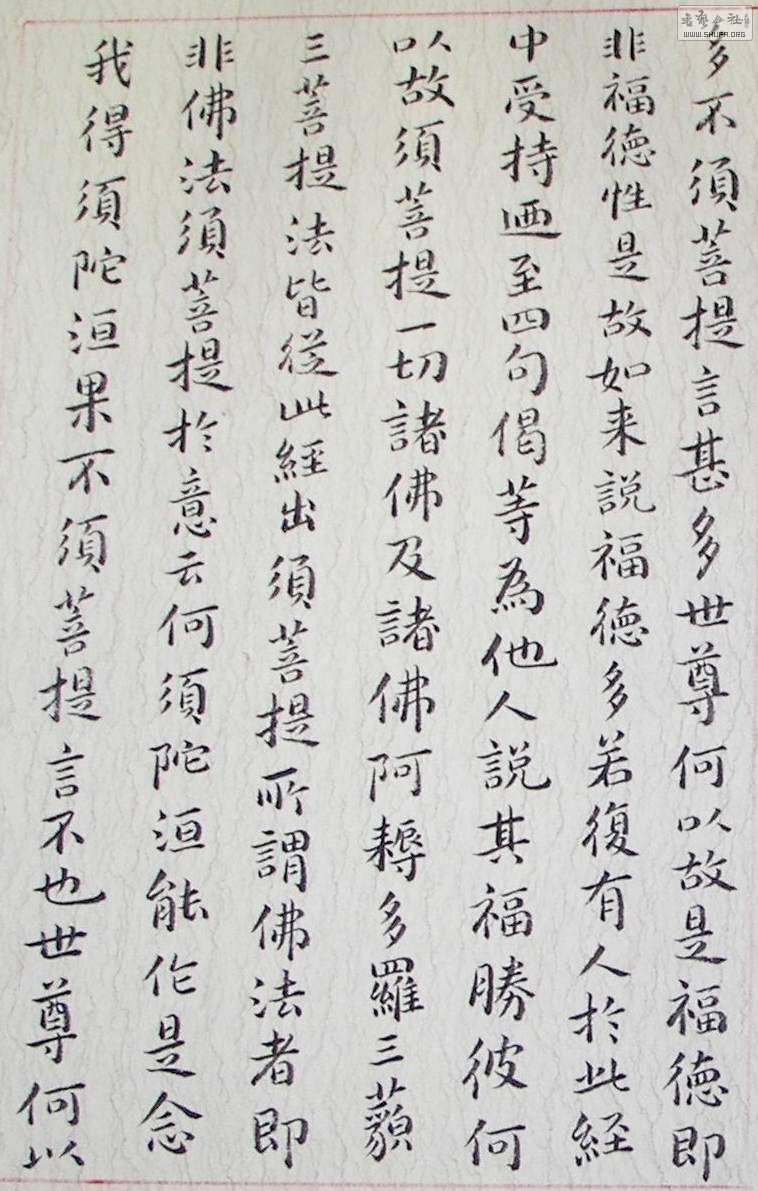 多不須菩提言甚多世尊何以故是福德即
非福德性是故如来說福德多若復有人於此經
中受持廼至四句偈等為他人說其福勝彼何
以故須菩提一切諸佛及諸佛阿耨多羅三藐
三菩提法皆從此經出須菩提所謂佛法者即
非佛法須菩提於意云何須陀洹能作是念
我得須陀洹果不須菩提言不也世尊何以
WWW.SHUFA.ORG